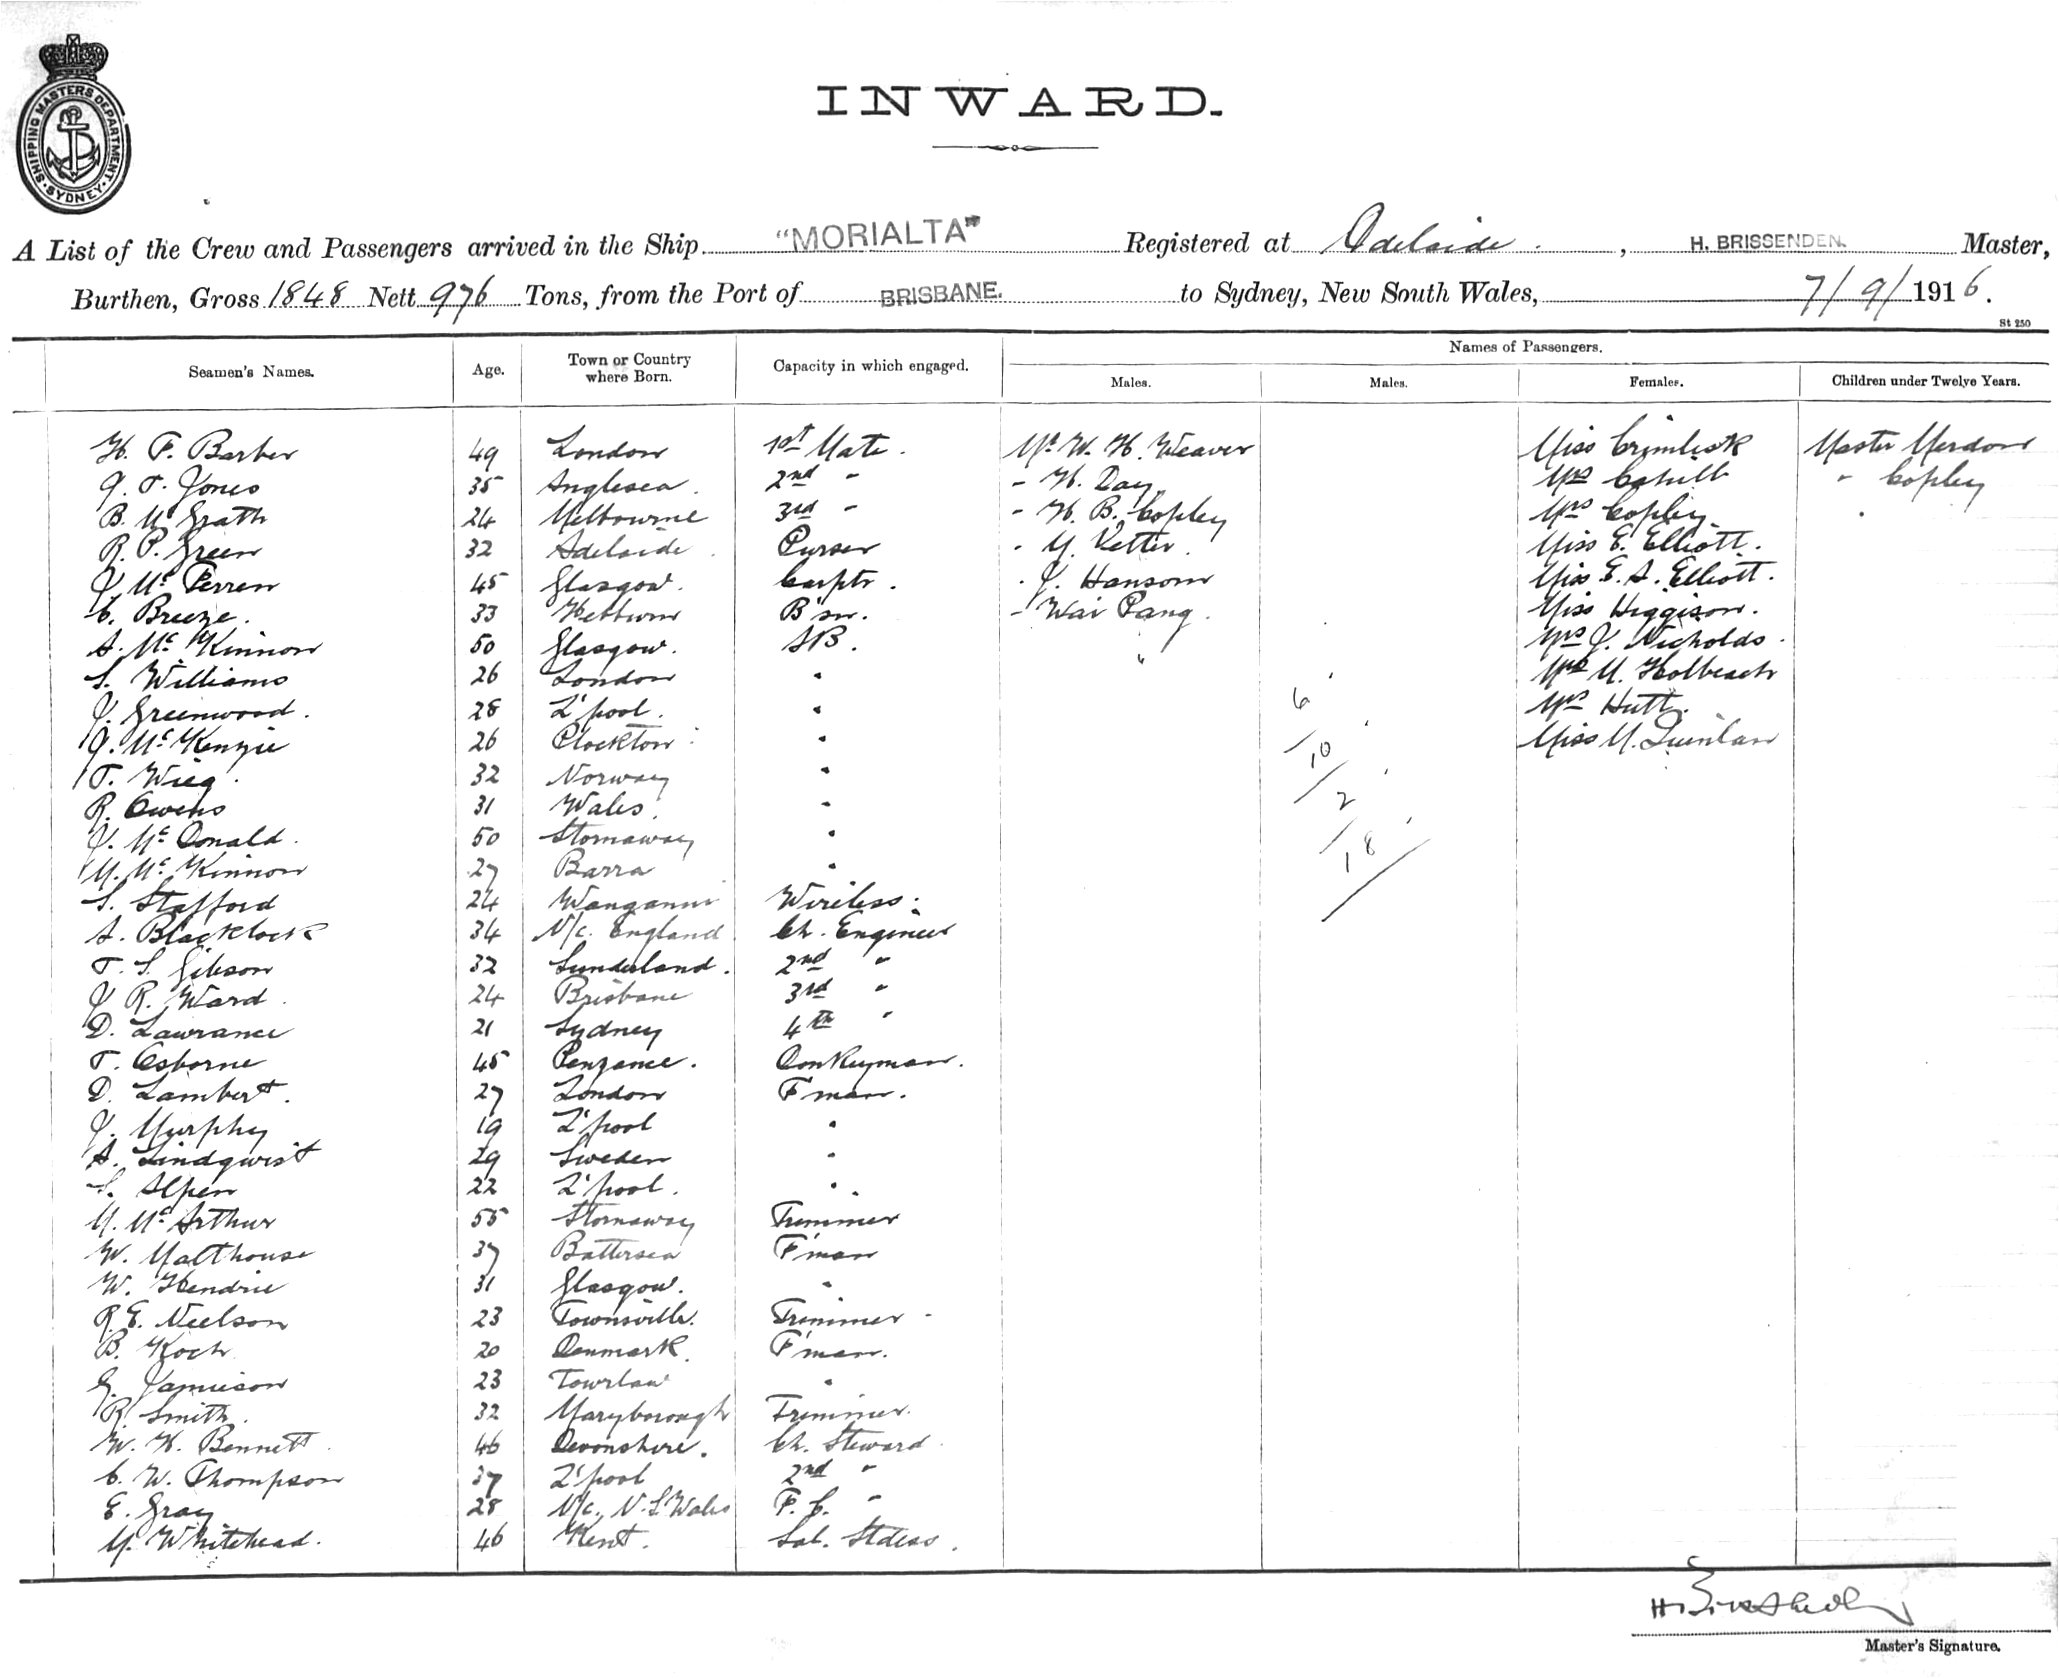 SHIPPING MASTERS DEPARTMENT · SYDNEY ·
INWARD.
A List of the Crew and Passengers arrived in the Ship "MORIALTA" Registered at Adelaide. , H. BRISSENDEN. Master,
Burthen, Gross 1848 Nett 976 Tons, from the Port of BRISBANE. to Sydney, New South Wales, 7/9/1916.
St 250
Seamen's Names. Age. Town or Country where Born. Capacity in which engaged. Names of Passengers.
Males. Males. Females. Children under Twelve Years.
H. F. Barber 49 London 1st Mate. Mr W. H. Weaver Miss Crimlisk Master
G. T. Jones 35 Anglesea. 2nd " - H. Day Mrs Cahill " Copley
B. McGrath 24 Melbourne 3rd " - H. B. Copley Mrs Copley
R. P. Green 32 Adelaide. Purser - Vetter. Miss E. Elliott.
J McPerren 45 Glasgow. Carptr. - J. Hansom Miss E. A. Elliott.
C. Breeze. 33 Hebburn B'sn. - Wai Pang. Miss Higgison.
A. McKinnon 50 Glasgow. AB. Mrs J. Nicholds.
S. Williams 26 London " " Mrs M. Holbeach
J. Greenwood. 28 L'pool. " 6 Mrs Hutt.
G. McKenzie 26 Plockton " 10 Miss M. Quinlan
T. Wieg. 32 Norway "
R. Owens 31 Wales. " 2
J. McDonald. 50 Stornaway "
M. McKinnon 27 Barra " 18
S. Stafford 24 Wanganui Wireless.
A. Blacklock 34 N/c. England Ch. Engineer
T. S. Gibson 32 Sunderland. 2nd "
J R. Ward. 24 Brisbane 3rd "
D. Lawrance 21 Sydney 4th "
T. Osborne 45 Penzance. Donkeyman.
D. Lambert. 27 London F'man.
J. Murphy 19 L'pool "
A. Lindqwist 29 Sweden "
S. Alpen 22 L'pool. "
M. McArthur 55 Stornaway Trimmer
W. Malthouse 37 Battersea F'man
W. Hendrie 31 Glasgow. "
R. E. Nielson 23 Townsville. Trimmer
B. Koch 20 Denmark. F'man.
G. Jamieson 23 Towrlaw "
R. Smith. 32 Maryborough Trimmer.
W. H. Bennett. 46 Devonshire. Ch. Steward.
C. W. Thompson 37 L'pool 2nd "
E. Gray 28 N/c. N.S Wales F. C. "
M. Whitehead. 46 Kent. Sal. Stdess.
Master's Signature.